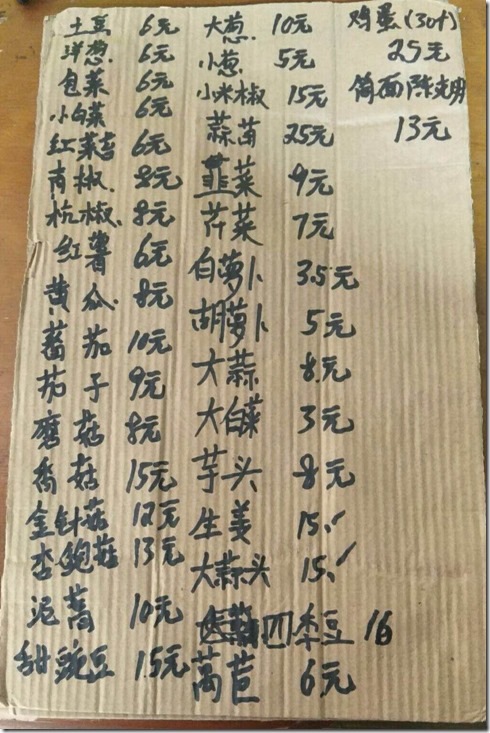 土豆 6元
洋葱 6元
包菜 6元
小白菜 6元
红菜苔 6元
青椒. 8元
杭椒. 8元
红薯 6元
黄瓜. 8元
蕃茄 10元
茄子 9元
磨菇 8元
香菇 15元
金针菇 12元
杏鲍菇 13元
泥蒿 10元
甜豌豆 15元
大葱. 10元
小葱 5元
小米椒 15元
蒜苗 25元
韭菜 9元
芹菜 7元
白萝卜 3.5元
胡萝卜 5元
大蒜 8元
大白菜 3元
芋头 8元
生姜 15.✓
大蒜头 15.✓
四季豆 16
莴苣 6元
鸡蛋(30个)
25元
筒面陈克明
13元